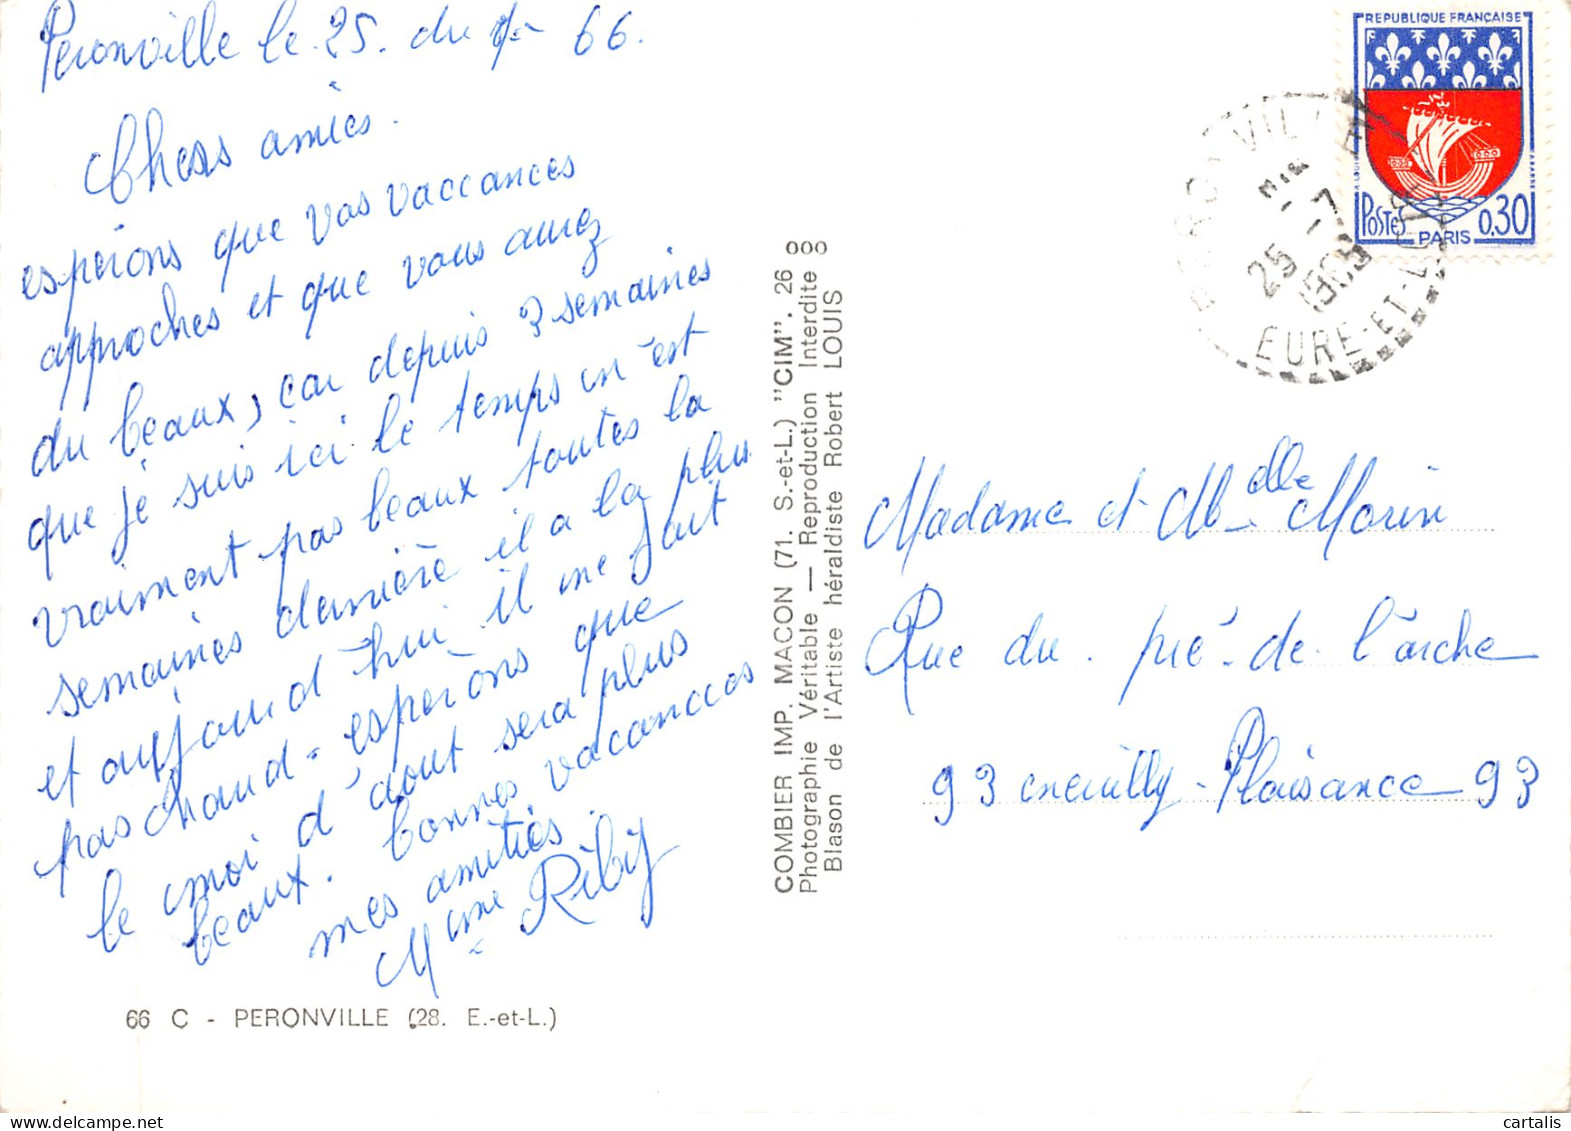 Peronville le 25. du 7- 66.
Chers amies.
espérons que vos vaccances
approches et que vous aurez
du beaux, car depuis 3 semaines
que je suis ici le temps n'est
vraiment pas beaux toutes la
semaines dernière il a la plus
et aujourd'hui il ne fait
pas chaud - espérons que
le moi d'aout sera plus
beaux. bonnes vacances
mes amitiés.
Mme Riby
66 C - PERONVILLE (28. E.-et-L.)
COMBIER IMP. MACON (71. S.-et-L.) "CIM". 26 ooo
Photographie Véritable — Reproduction Interdite
Blason de l'Artiste héraldiste Robert LOUIS
REPUBLIQUE FRANÇAISE
POSTES
0,30
PARIS
25 - 7
EURE-ET-LOIR
Madame et Mdlle Morin
Rue du pré de l'arche
93 neuilly-Plaisance 93
cartalis